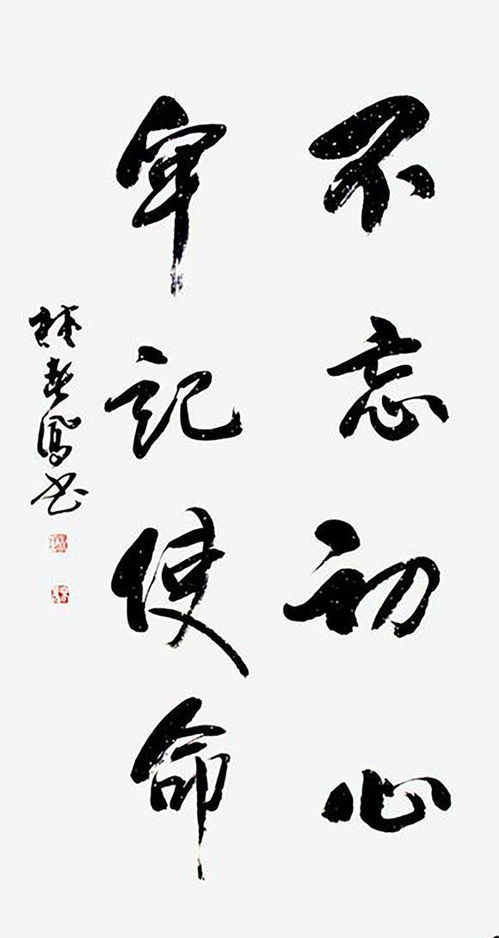 不忘初心
牢记使命
春凤书